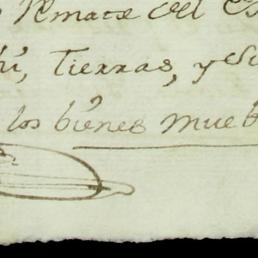 Remate del
, Tierras, y
los bienes mueb